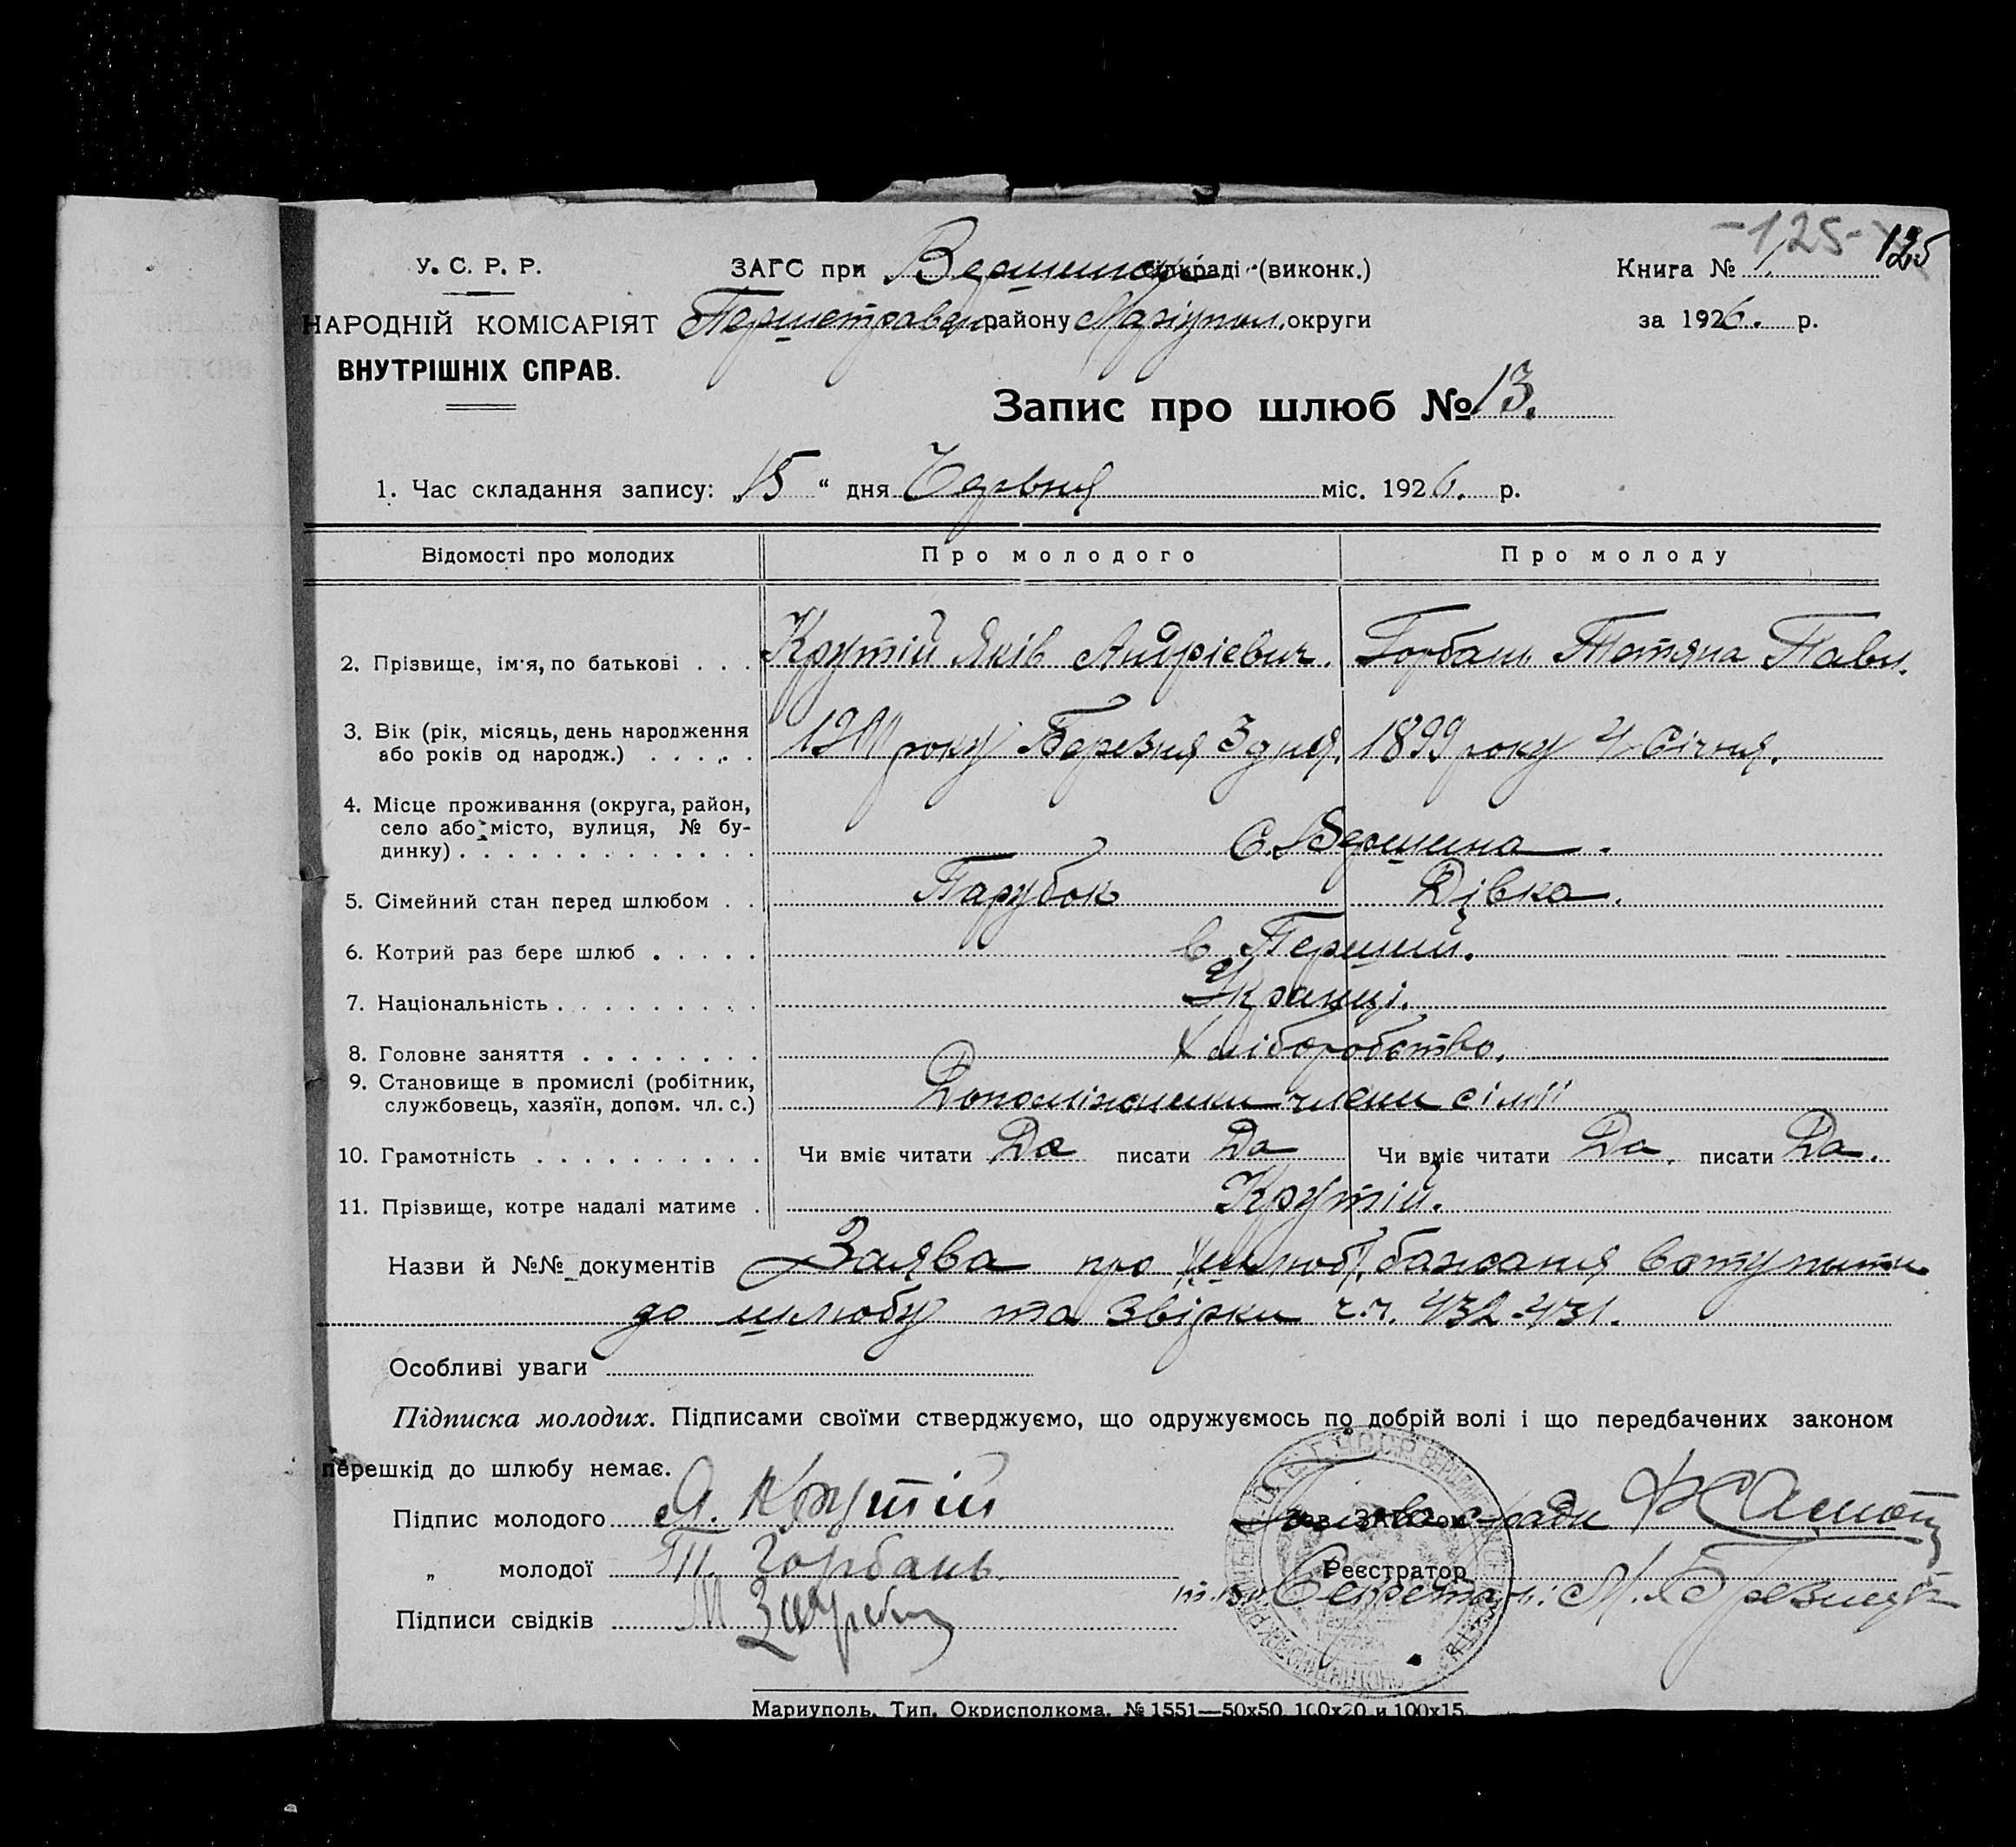 -125- 125
У. С. Р. Р. ЗАГС при Вершинській сількраді (виконк.) Книга № 1.
НАРОДНІЙ КОМІСАРІЯТ Першотравен. району Маріупол. округи за 1926. р.
ВНУТРІШНІХ СПРАВ.
Запис про шлюб № 13.
1. Час складання запису: „15“ дня Червня міс. 1926. р.
Відомості про молодих Про молодого Про молоду
2. Прізвище, ім'я, по батькові . . . Крутій Яків Андрієвич. Горбань Тотяна Павл.
3. Вік (рік, місяць, день народження
або років од народж.) . . . . . року Березня 3 дня. 1899 року 4 Січня.
4. Місце проживання (округа, район,
село або місто, вулиця, № бу-
динку) . . . . . . . . . . . . . С. Вершина.
5. Сімейний стан перед шлюбом . . Парубок Дівка.
6. Котрий раз бере шлюб . . . . . в Перший.
7. Національність . . . . . . . . . Украінці.
8. Головне заняття . . . . . . . . Хліборобство.
9. Становище в промислі (робітник,
службовець, хазяїн, допом. чл. с.) члени сімії
10. Грамотність . . . . . . . . . . Чи вміє читати Да писати Да Чи вміє читати Да. писати Да.
11. Прізвище, котре надалі матиме . Крутій.
Назви й №№ документів Заява про шлюб, бажання вступити
до шлюбу та звірки ч.ч. 432-431.
Особливі уваги
Підписка молодих. Підписами своїми стверджуємо, що одружуємось по добрій волі і що передбачених законом
перешкід до шлюбу немає.
Підпис молодого Я. Крутій Зав. ЗАГСом Голова с-ради
„ молодої Т. Горбань. Реєстратор
Підписи свідків Секретарь:
Мариуполь. Тип. Окрисполкома. № 1551—50х50 100х20 и 100х15